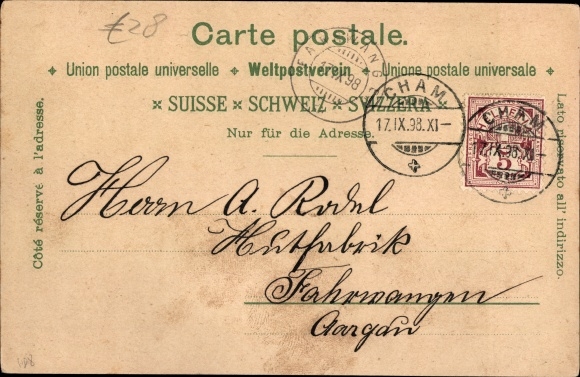 £28
Carte postale.
Union postale universelle ✦ Weltpostverein ✦ Unione postale universale ✦
× SUISSE × SCHWEIZ × SVIZZERA ×
Nur für die Adresse.
17.IX.98
CHAM
17.IX.98.XI-
CHAM
17.IX.98.XI
5
Côté réservé à l'adresse.
Lato riservato all' indirizzo.
Herrn A. Rodel
Hutfabrik
Fahrwangen
Aargau